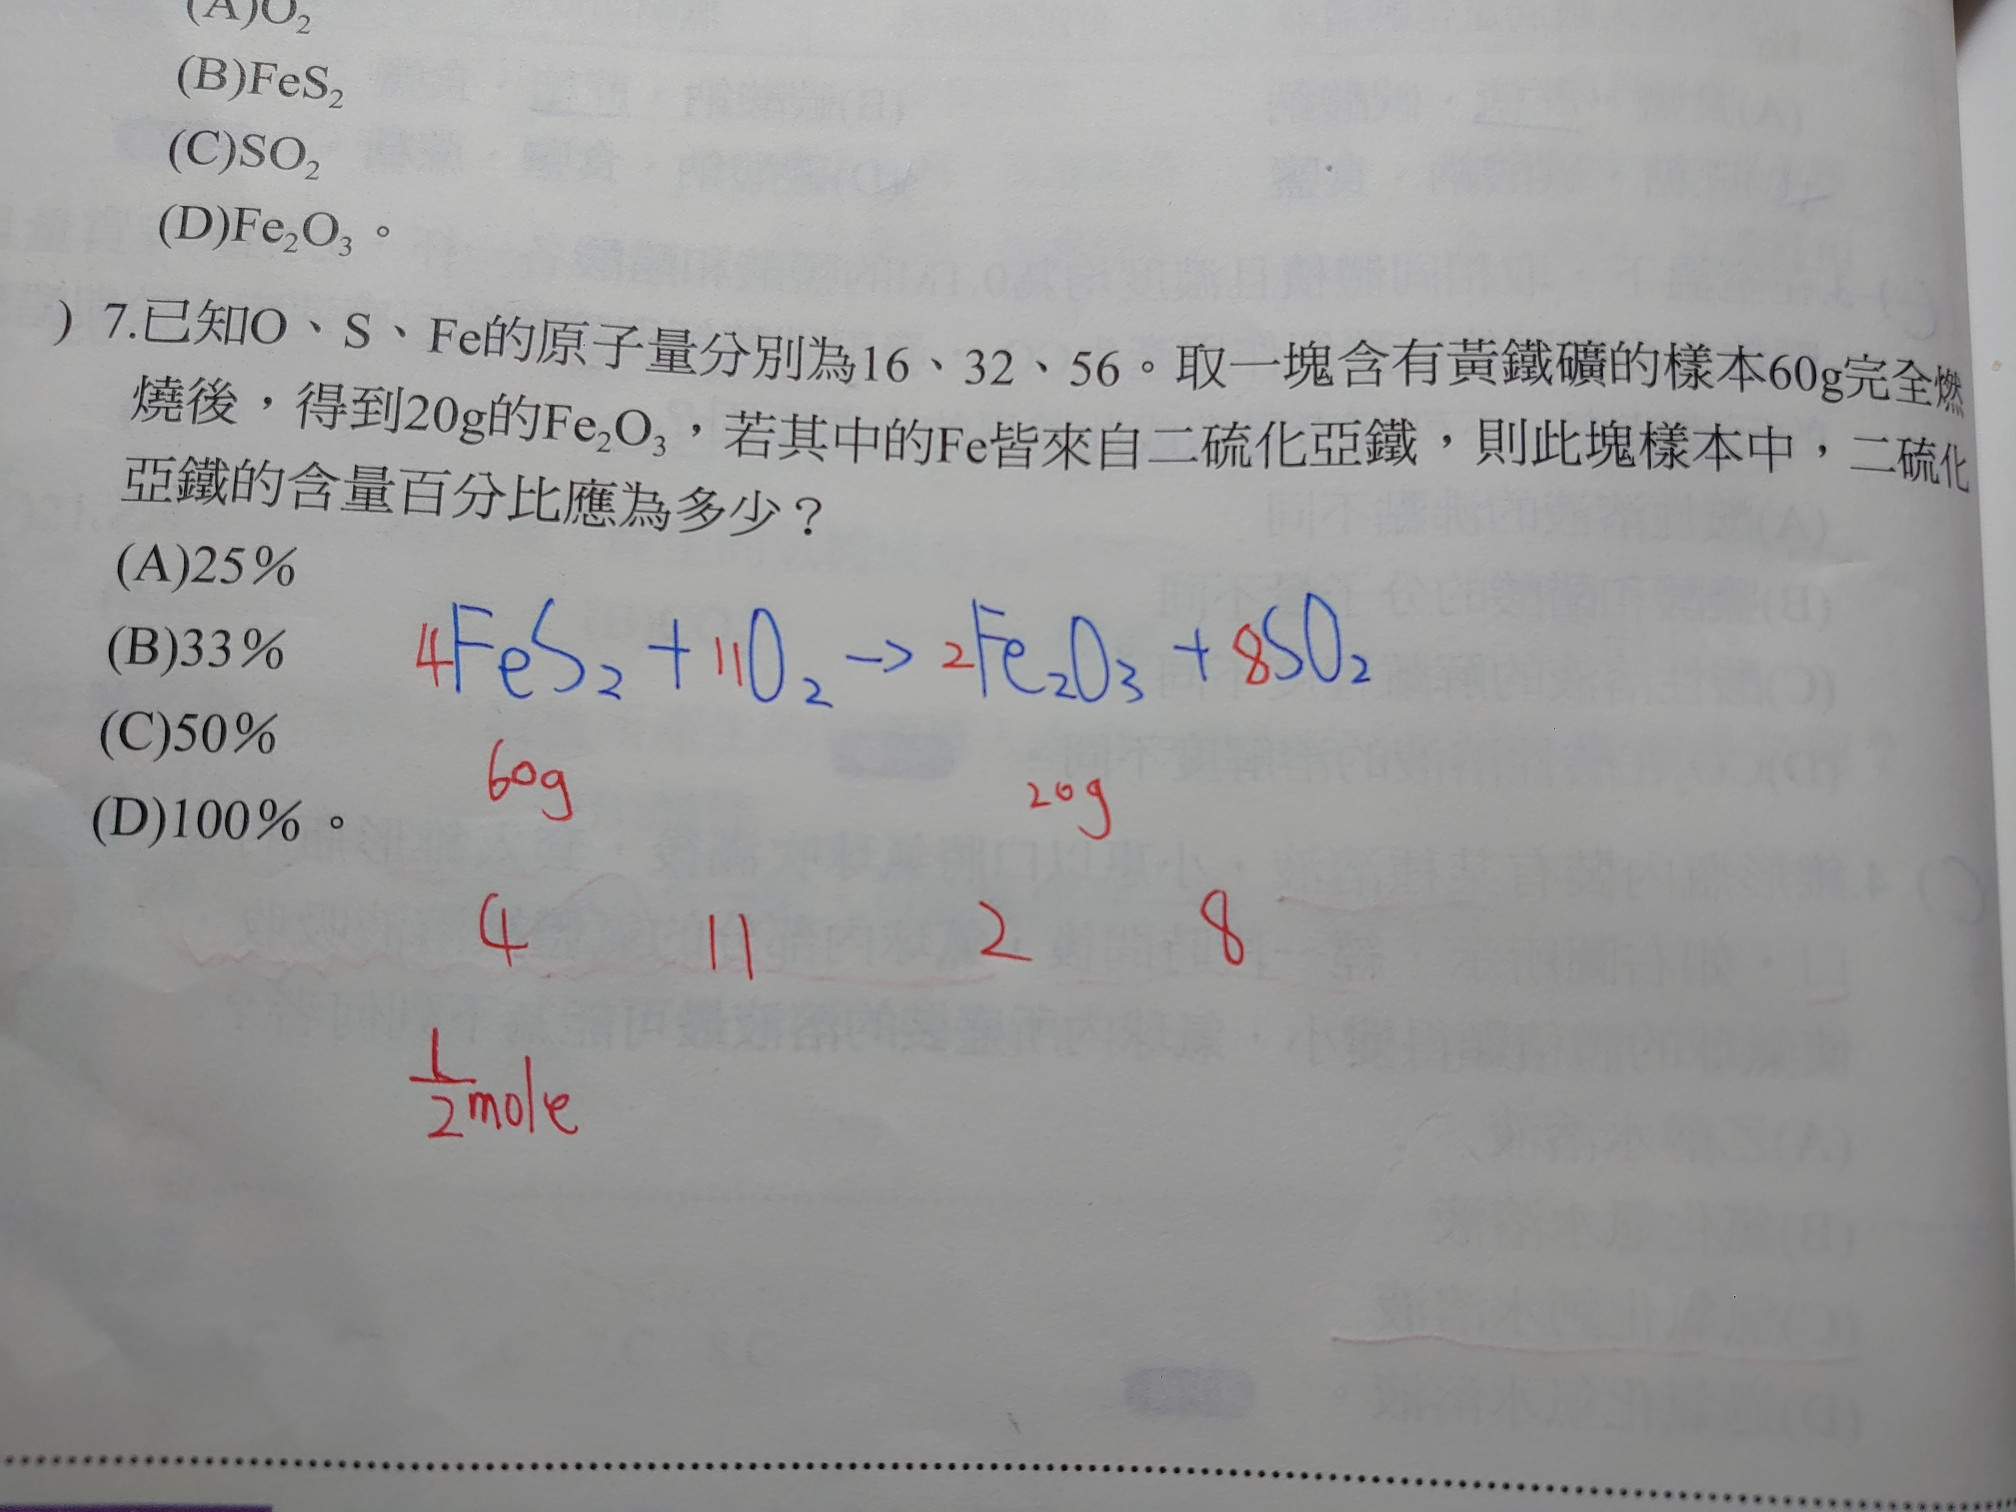 (A)O₂
(B)FeS₂
(C)SO₂
(D)Fe₂O₃。
) 7.已知O、S、Fe的原子量分別為16、32、56。取一塊含有黃鐵礦的樣本60g完全燃
燒後，得到20g的Fe₂O₃，若其中的Fe皆來自二硫化亞鐵，則此塊樣本中，二硫化
亞鐵的含量百分比應為多少？
(A)25%
(B)33%
(C)50%
(D)100%。
4FeS₂ + 11O₂ → 2Fe₂O₃ + 8SO₂
60g 20g
4 11 2 8
1/2 mole